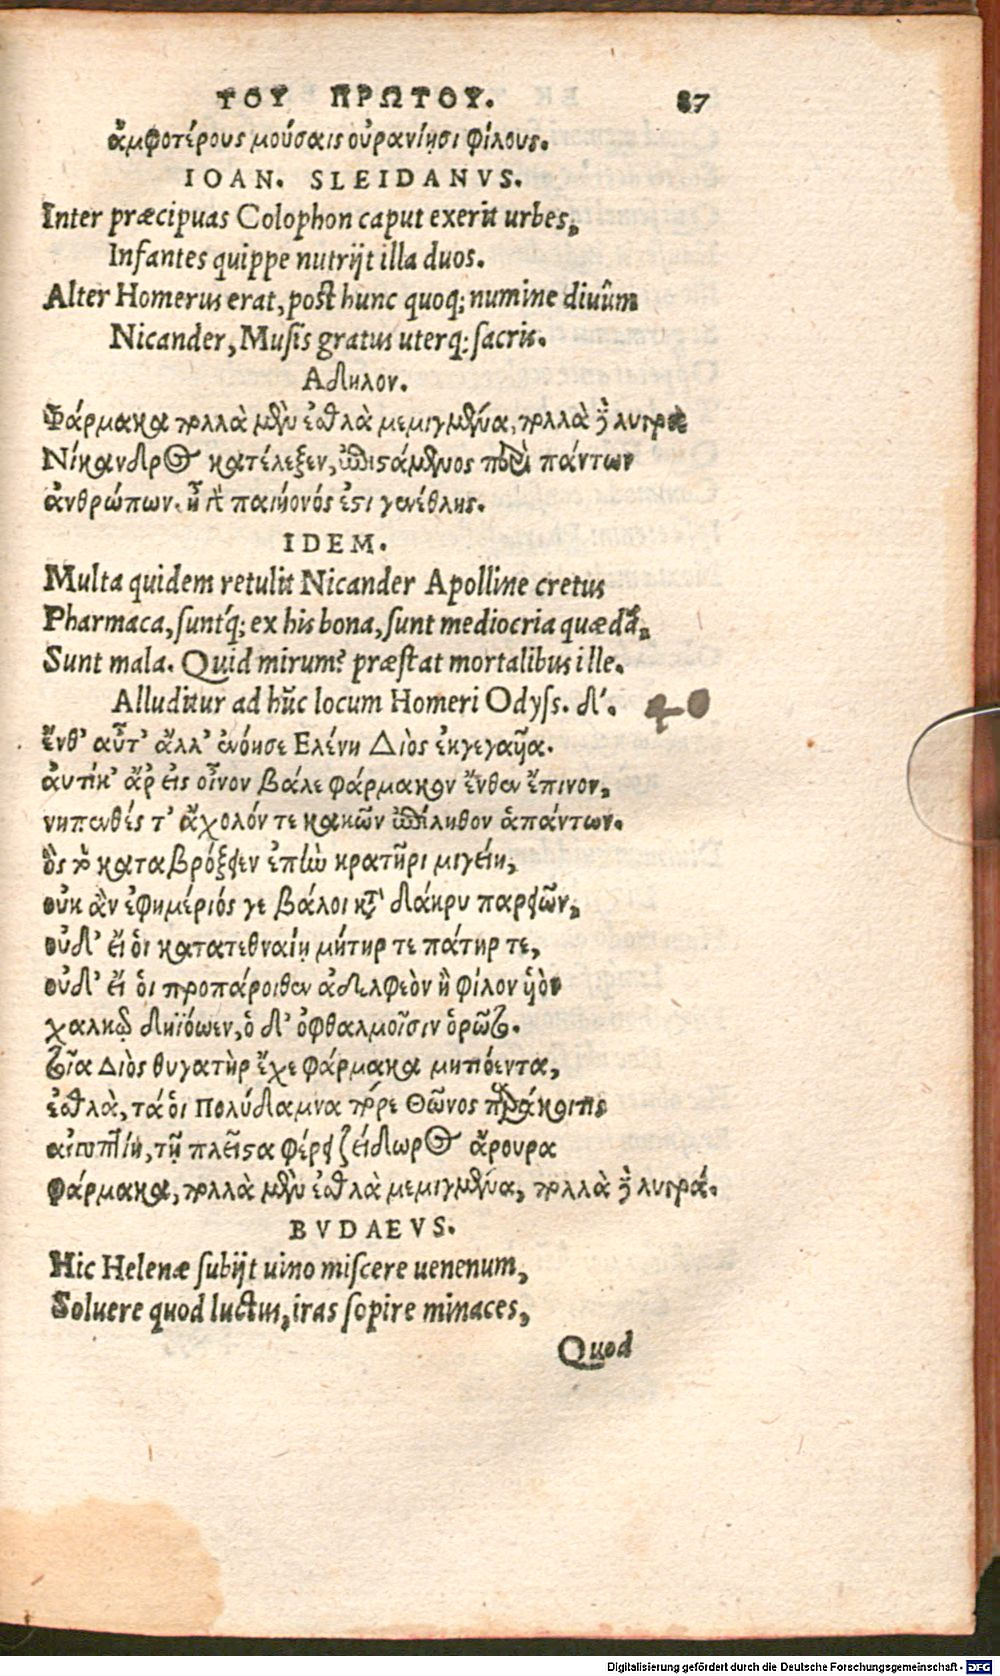 ΤΟΥ ΠΡΩΤΟΥ. 87
ἀμφοτέρους μούσαις οὐρανίῃσι φίλους.
IOAN. SLEIDANVS.
Inter præcipuas Colophon caput exerit urbes,
Infantes quippe nutrijt illa duos.
Alter Homerus erat, post hunc quoq; numine diuûm
Nicander, Musis gratus uterq; sacris.
Αδηλον.
Φάρμακα πολλὰ μὲν ἐσθλὰ μεμιγμένα, πολλὰ ἢ λυγρὰ
Νίκανδρος κατέλεξεν, ἐπιστάμενος περὶ πάντων
ἀνθρώπων. ἦ γὰρ παιήονός ἐστι γενέθλης.
IDEM.
Multa quidem retulit Nicander Apolline cretus
Pharmaca, sunt'q; ex his bona, sunt mediocria quædā,
Sunt mala. Quid mirum? præstat mortalibus ille.
Alluditur ad hūc locum Homeri Odyss. δ'.
ἔνθ' αὖτ' ἄλλ' ἐνόησε Ελένη Διὸς ἐκγεγαῦα.
αὐτίκ' ἄρ εἰς οἶνον βάλε φάρμακον ἔνθεν ἔπινον,
νηπενθές τ' ἄχολόν τε κακῶν ἐπίληθον ἁπάντων.
ὃς τὸ καταβρόξειεν ἐπὴν κρατῆρι μιγείη,
οὐκ ἂν ἐφημέριός γε βάλοι κτ̀ δάκρυ παρειῶν,
οὐδ' εἴ οἱ κατατεθναίη μήτηρ τε πάτηρ τε,
οὐδ' εἴ οἱ προπάροιθεν ἀδελφεὸν ἢ φίλον ὑὸν
χαλκῷ δηϊόωεν, ὁ δ' ὀφθαλμοῖσιν ὁρῷτο.
τοῖα Διὸς θυγατὴρ ἔχε φάρμακα μητιόεντα,
ἐσθλὰ, τά οἱ Πολύδαμνα πόρε Θῶνος παράκοιτις
αἰγυπτίη, τῇ πλεῖστα φέρει ζείδωρος ἄρουρα
φάρμακα, πολλὰ μὲν ἐσθλὰ μεμιγμένα, πολλὰ ἢ λυγρά.
BVDAEVS.
Hic Helenæ subijt uino miscere uenenum,
Soluere quod luctus, iras sopire minaces,
Quod
Digitalisierung gefördert durch die Deutsche Forschungsgemeinschaft - DFG